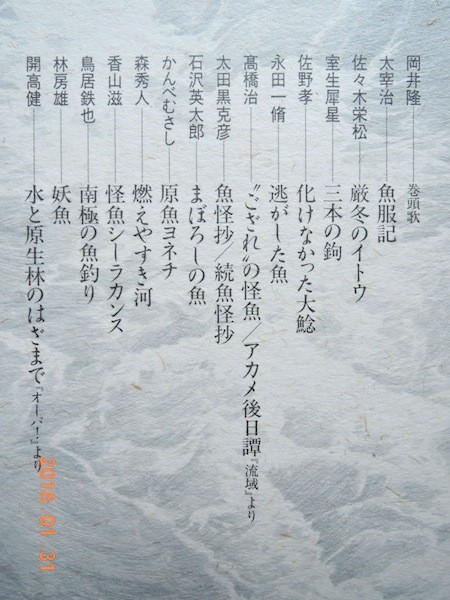 岡井隆――巻頭歌
太宰治――魚服記
佐々木栄松――厳冬のイトウ
室生犀星――三本の鉤
佐野孝――化けなかった大鯰
永田一脩――逃がした魚
髙橋治――〝ござれ〟の怪魚／アカメ後日譚『流域』より
太田黒克彦――魚怪抄／続魚怪抄
石沢英太郎――まぼろしの魚
かんべむさし――原魚ヨネチ
森秀人――燃えやすき河
香山滋――怪魚シーラカンス
鳥居鉄也――南極の魚釣り
林房雄――妖魚
開高健――水と原生林のはざまで『オーパ！』より
2016 01 31